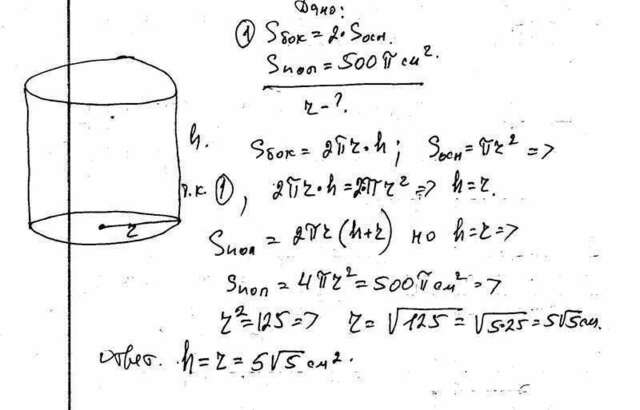 Дано:
① Sбок = 2·Sосн.
Sпол = 500π см².
r - ?
h.
Sбок = 2πr·h; Sосн = πr² =>
т.к. ①, 2πr·h = 2πr² => h = r.
r
Sпол = 2πr(h+r) но h = r =>
Sпол = 4πr² = 500π см² =>
r² = 125 => r = √125 = √5·25 = 5√5 см.
ответ. h = r = 5√5 см².